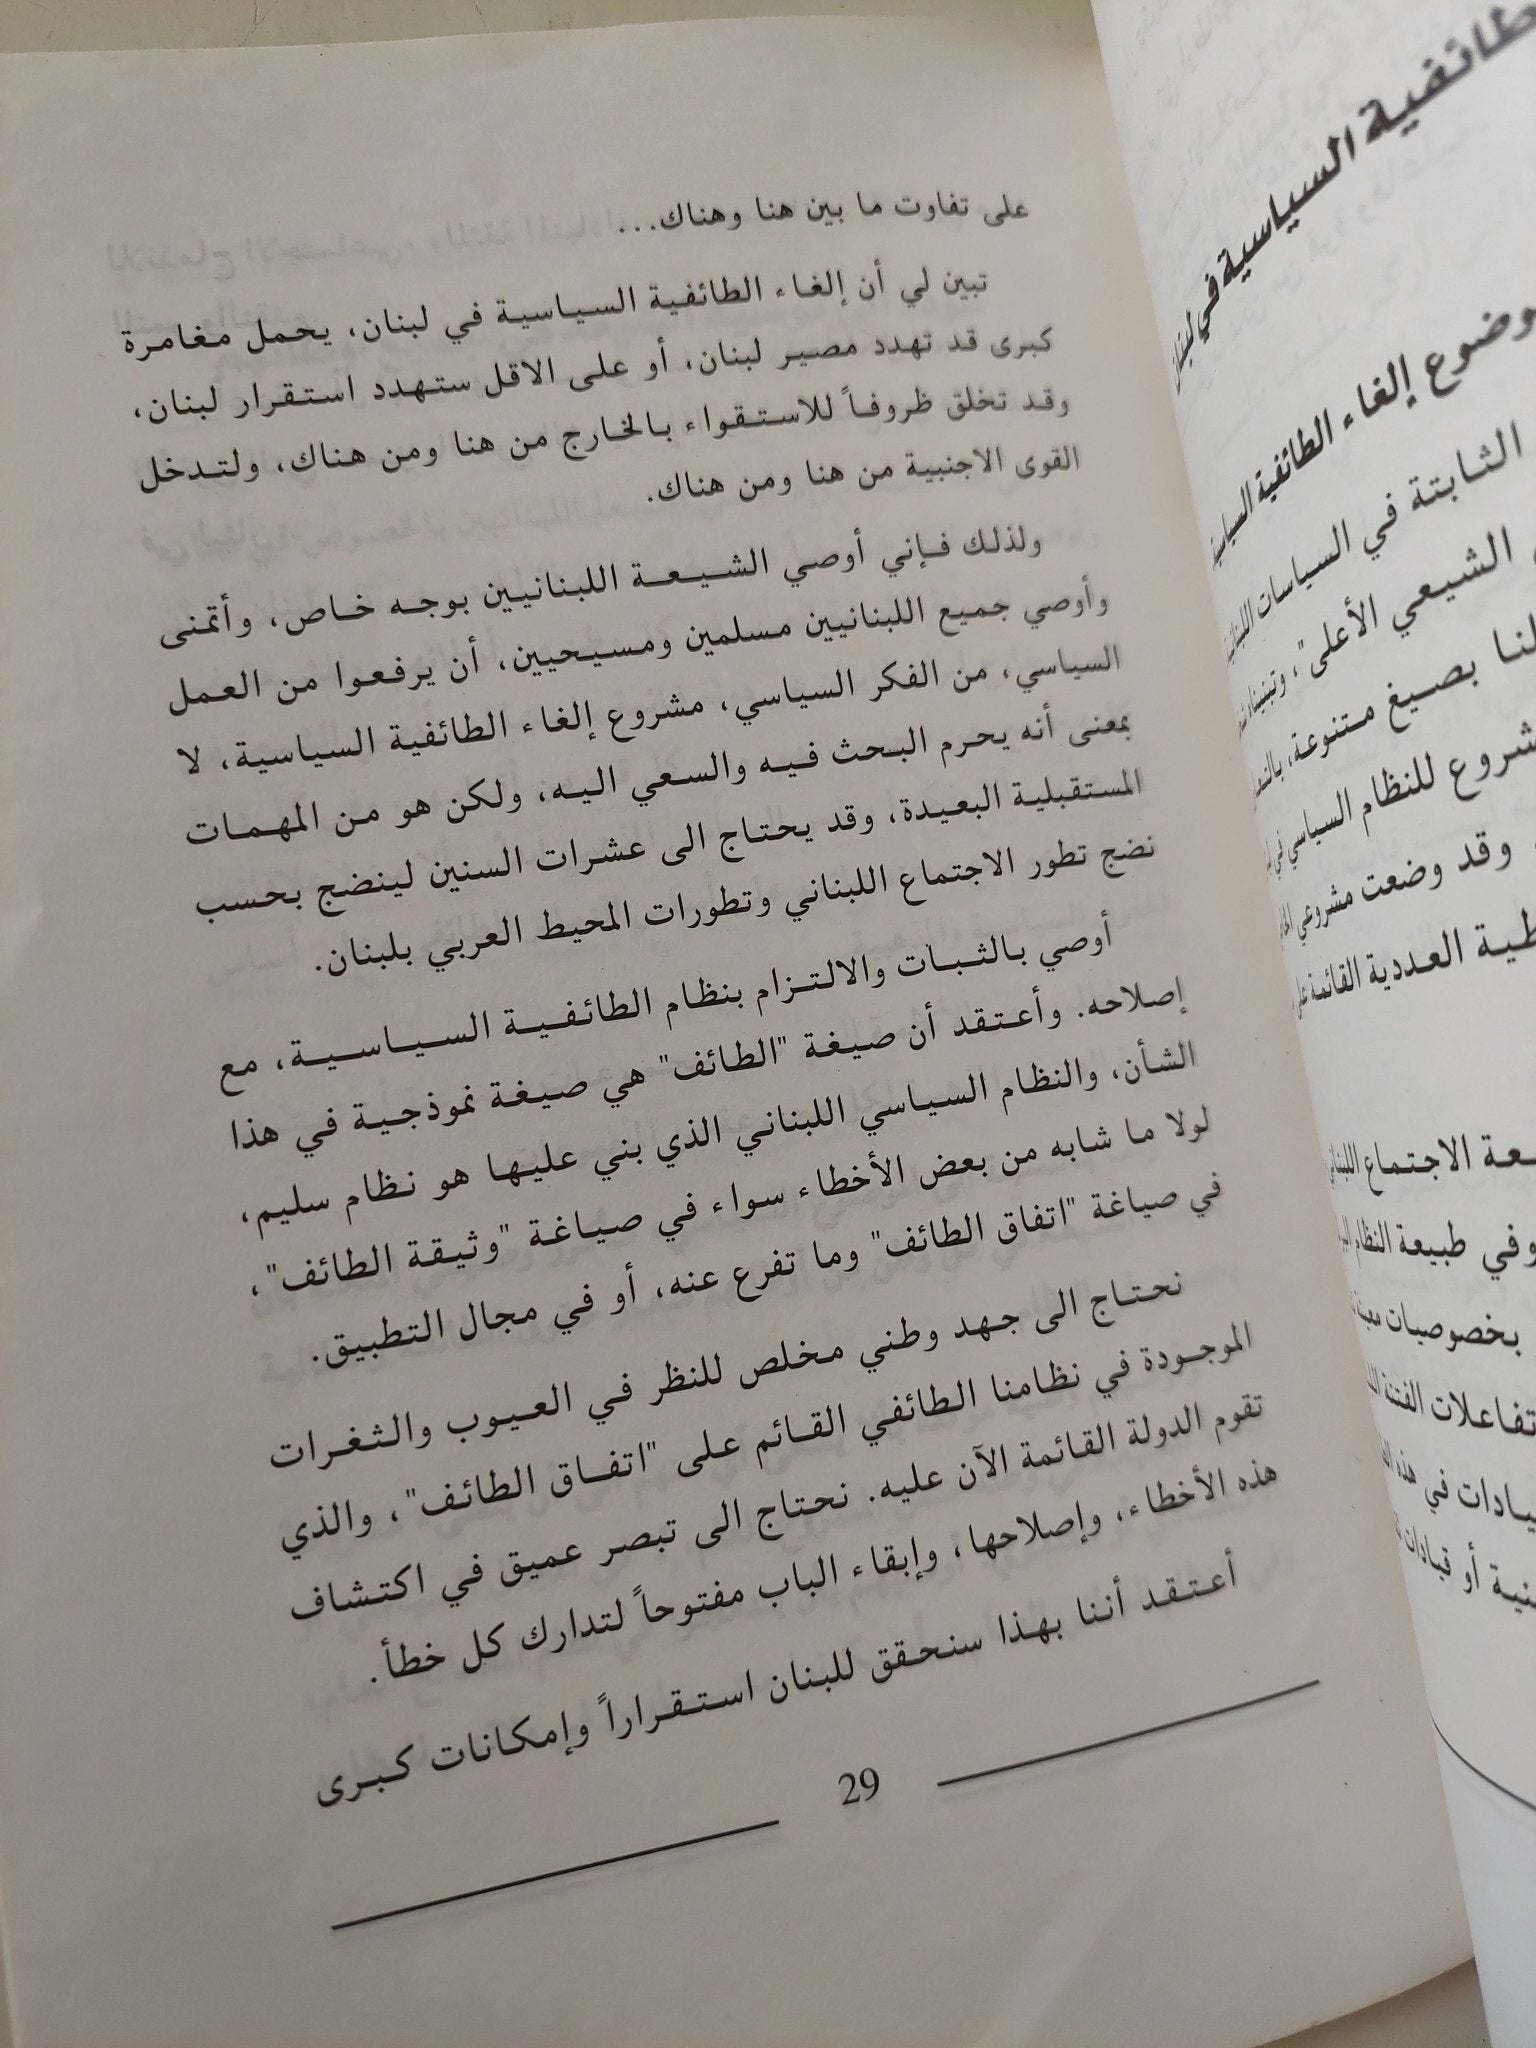 طائفية السياسية في لبنان
وضوع إلغاء الطائفية السياسية
الثابتة في السياسات اللبنانية
الشيعي الأعلى"، وتبنيناه
لنا بصيغ متنوعة،
شروع للنظام السياسي في
وقد وضعت مشروعي
طية العددية القائمة على
عة الاجتماع اللبناني
وفي طبيعة النظام
بخصوصيات معينة
تفاعلات الفتنة
يادات في هذه
نية أو قيادات
على تفاوت ما بين هنا وهناك...
تبين لي أن إلغاء الطائفية السياسية في لبنان، يحمل مغامرة
كبرى قد تهدد مصير لبنان، أو على الاقل ستهدد استقرار لبنان،
وقد تخلق ظروفاً للاستقواء بالخارج من هنا ومن هناك، ولتدخل
القوى الاجنبية من هنا ومن هناك.
ولذلك فإني أوصي الشيعة اللبنانيين بوجه خاص، وأتمنى
وأوصي جميع اللبنانيين مسلمين ومسيحيين، أن يرفعوا من العمل
السياسي، من الفكر السياسي، مشروع إلغاء الطائفية السياسية، لا
بمعنى أنه يحرم البحث فيه والسعي اليه، ولكن هو من المهمات
المستقبلية البعيدة، وقد يحتاج الى عشرات السنين لينضج بحسب
نضج تطور الاجتماع اللبناني وتطورات المحيط العربي بلبنان.
أوصي بالثبات والالتزام بنظام الطائفية السياسية، مع
إصلاحه. وأعتقد أن صيغة "الطائف" هي صيغة نموذجية في هذا
الشأن، والنظام السياسي اللبناني الذي بني عليها هو نظام سليم،
لولا ما شابه من بعض الأخطاء سواء في صياغة "وثيقة الطائف"،
في صياغة "اتفاق الطائف" وما تفرع عنه، أو في مجال التطبيق.
نحتاج الى جهد وطني مخلص للنظر في العيوب والثغرات
الموجودة في نظامنا الطائفي القائم على "اتفاق الطائف"، والذي
تقوم الدولة القائمة الآن عليه. نحتاج الى تبصر عميق في اكتشاف
هذه الأخطاء، وإصلاحها، وإبقاء الباب مفتوحاً لتدارك كل خطأ.
أعتقد أننا بهذا سنحقق للبنان استقراراً وإمكانات كبرى
29